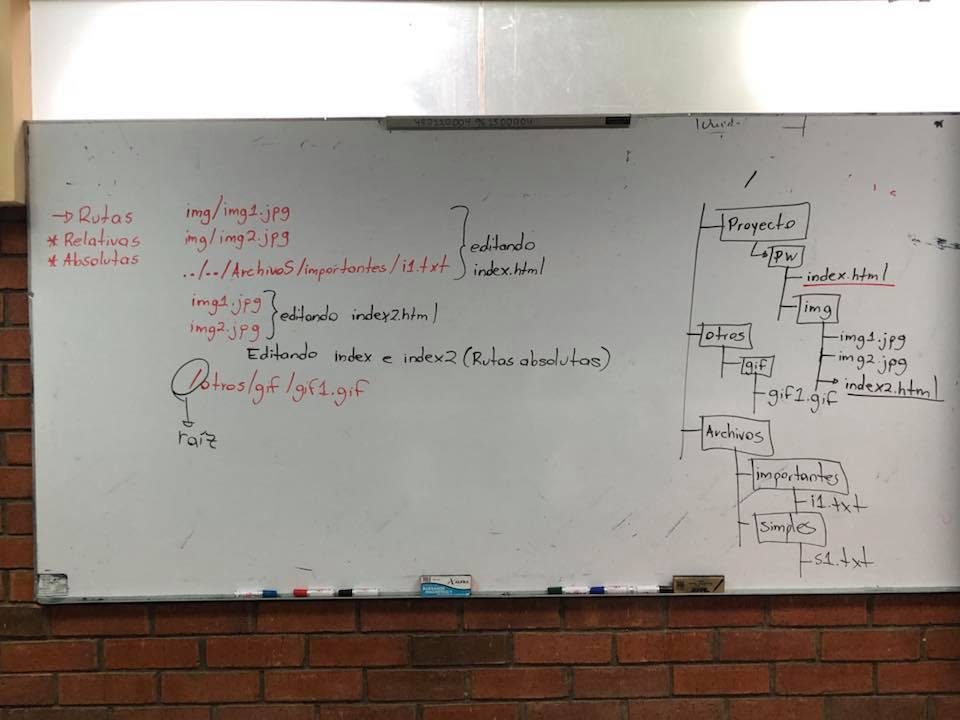 → Rutas
* Relativas
* Absolutas
img/img1.jpg
img/img2.jpg
../../Archivos/importantes/i1.txt
editando
index.html
img1.jpg
img2.jpg
editando index2.html
Editando index e index2 (Rutas absolutas)
/otros/gif/gif1.gif
raíz
/
Proyecto
PW
index.html
img
img1.jpg
img2.jpg
index2.html
otros
gif
gif1.gif
Archivos
importantes
i1.txt
simples
s1.txt